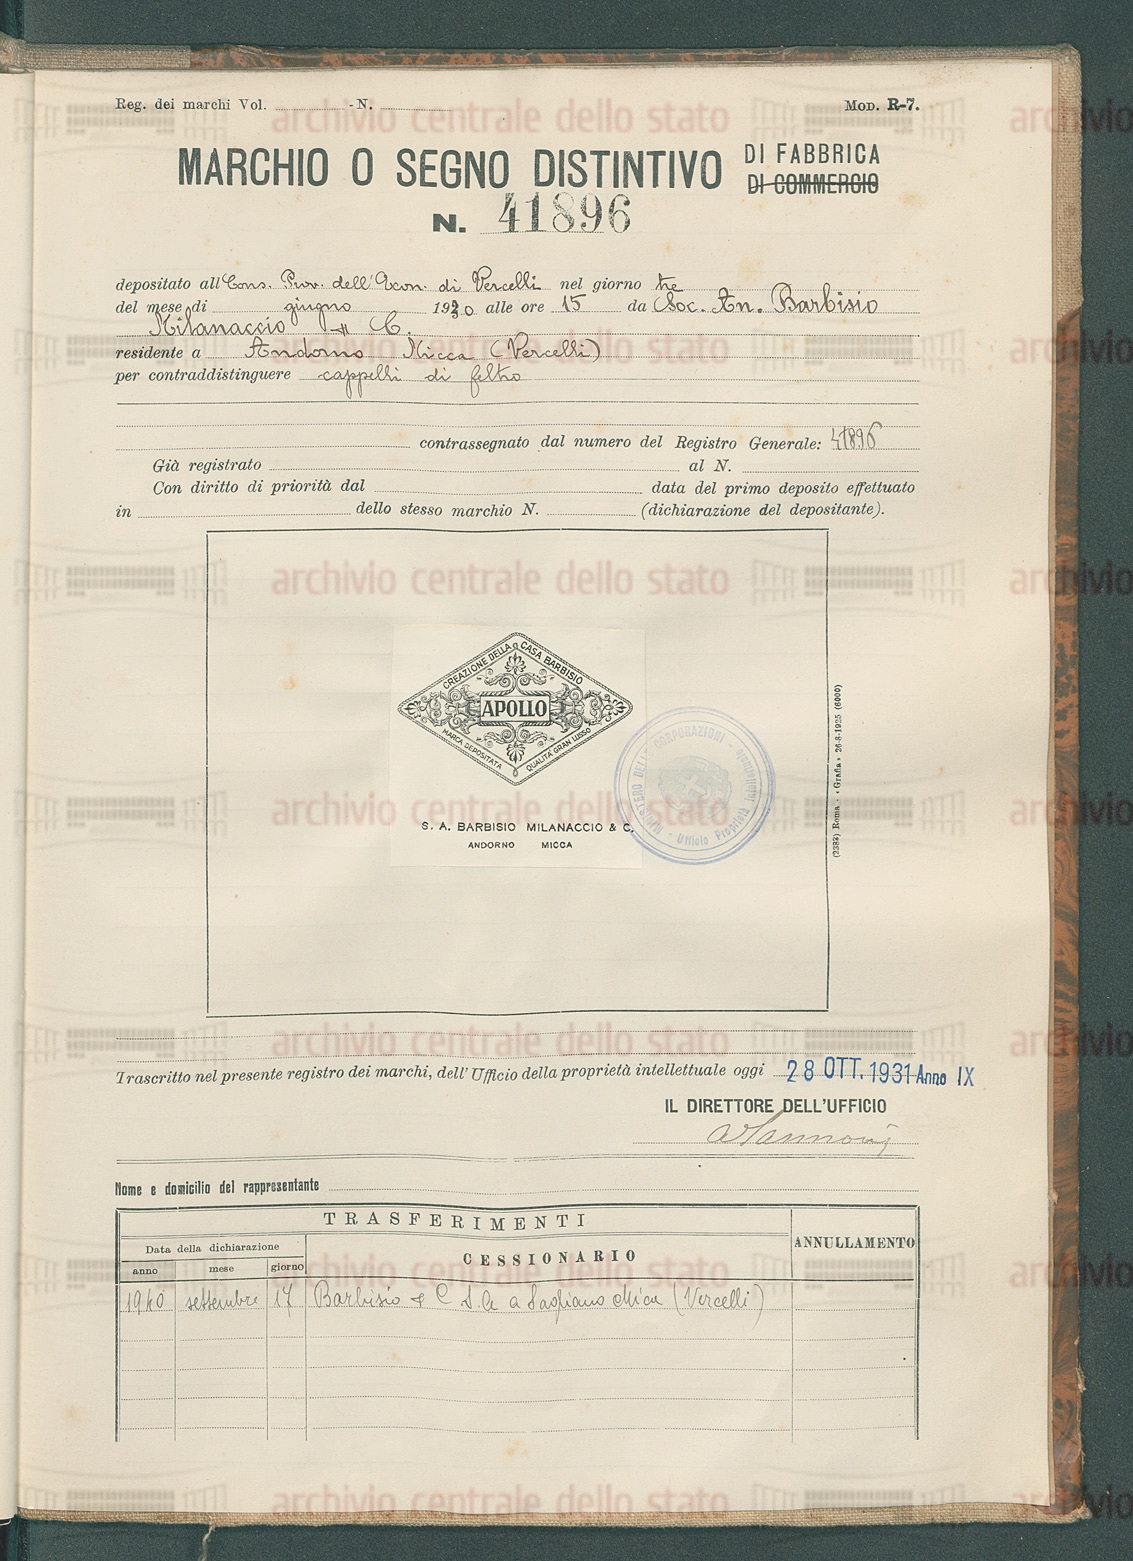 Reg. dei marchi Vol. - N. Mod. R-7.
MARCHIO O SEGNO DISTINTIVO DI FABBRICA
DI COMMERCIO
N. 41896
depositato all' Cons. Prov. dell'Econ. di Vercelli nel giorno tre
del mese di giugno 1930 alle ore 15 da Soc. An. Barbisio
Milanaccio & C.
residente a Andorno Micca (Vercelli)
per contraddistinguere cappelli di feltro
contrassegnato dal numero del Registro Generale: 41896
Già registrato al N.
Con diritto di priorità dal data del primo deposito effettuato
in dello stesso marchio N. (dichiarazione del depositante).
CREAZIONE DELLA CASA BARBISIO
APOLLO
MARCA DEPOSITATA QUALITÀ GRAN LUSSO
S. A. BARBISIO MILANACCIO & C.
ANDORNO MICCA
MINISTERO DELLE CORPORAZIONI - Ufficio Proprietà Intellettuale
(2383) Roma - «Grafia» 26-8-1925 (6000)
Trascritto nel presente registro dei marchi, dell'Ufficio della proprietà intellettuale oggi 28 OTT. 1931 Anno IX
IL DIRETTORE DELL'UFFICIO
Nome e domicilio del rappresentante
TRASFERIMENTI
Data della dichiarazione CESSIONARIO ANNULLAMENTO
anno mese giorno
1940 settembre 17 Barbisio & C S.A. a Sagliano Micca (Vercelli)
archivio centrale dello stato